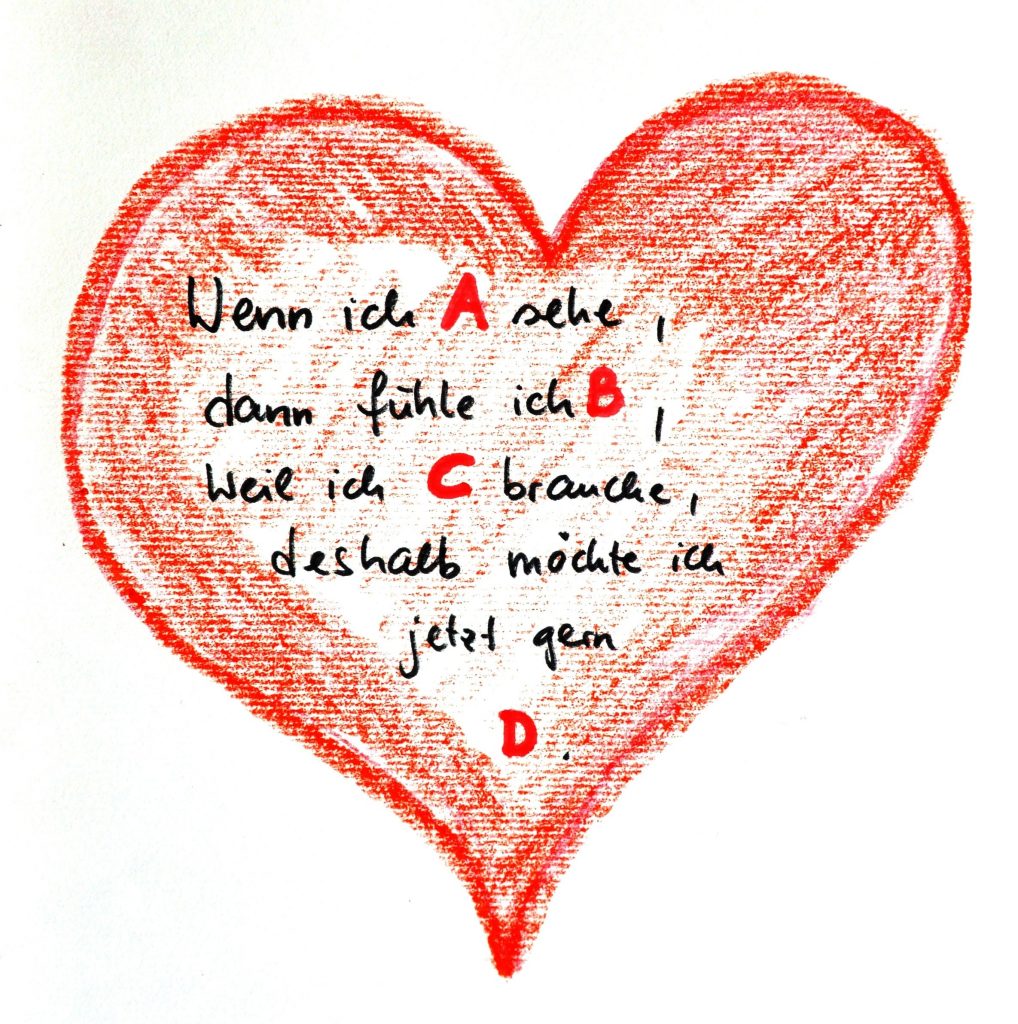 Wenn ich A sehe,
dann fühle ich B,
weil ich C brauche,
deshalb möchte ich
jetzt gern
D.